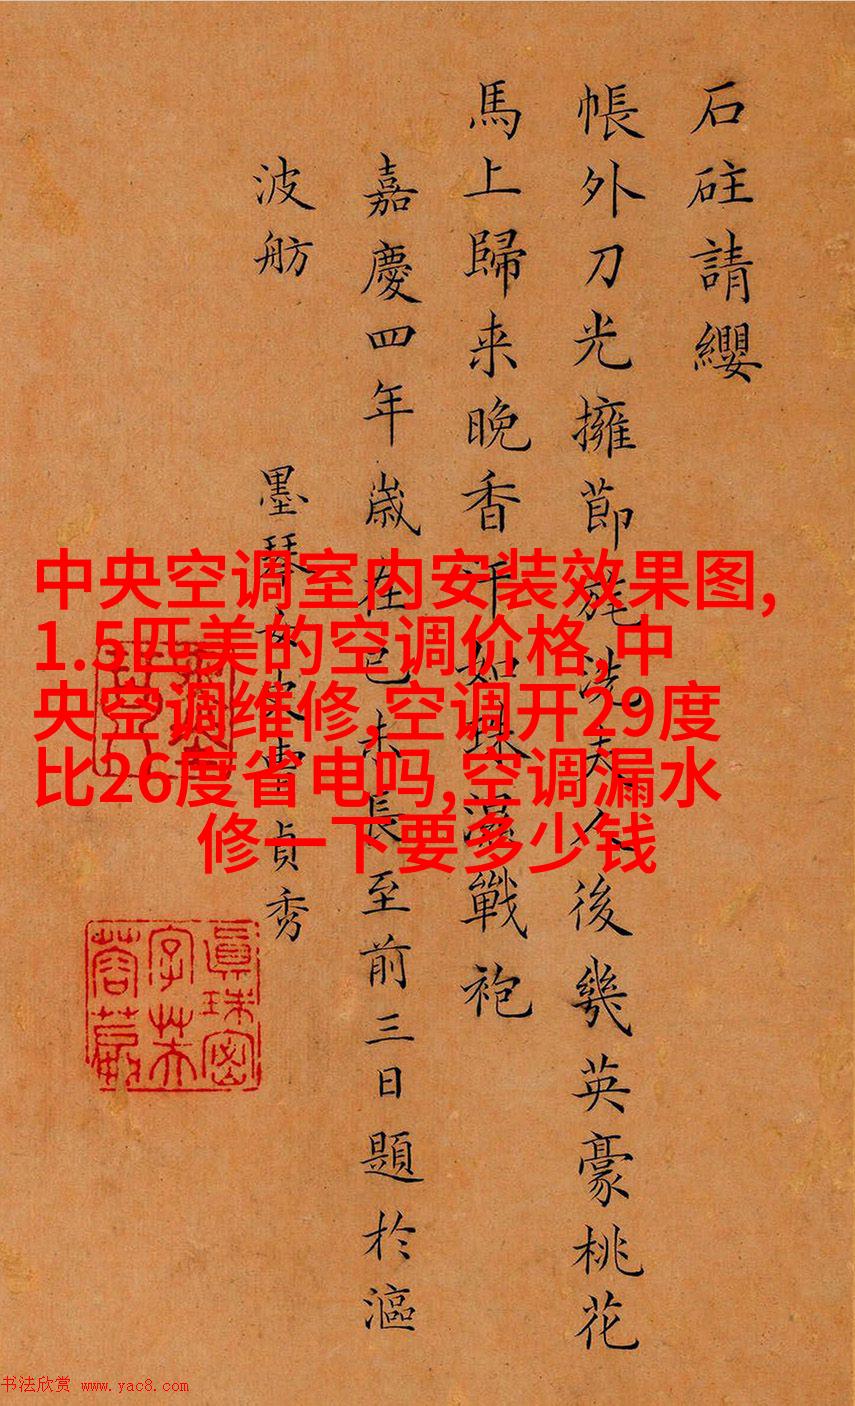 石砫請纓
帳外刀光擁節旄洗夫人後幾英豪桃花
馬上歸来晚香汗如珠濕戰袍
嘉慶四年歲在己未長至前三日題於漚
波舫 墨琴女史曹貞秀
眞珠密
字芙
蓉
中央空调室内安装效果图,
1.5匹美的空调价格,中
央空调维修,空调开29度
比26度省电吗,空调漏水
修一下要多少钱
书法欣赏 www.yac8.com